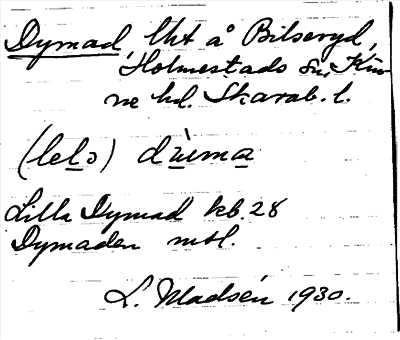 Dymad, lht å Bilseryd,
Holmestads sn, Kin-
ne hd. Skarab. l.
(lelə) dỳma
Lilla Dymad kb. 28
Dymaden mtl.
L. Madsén 1930.